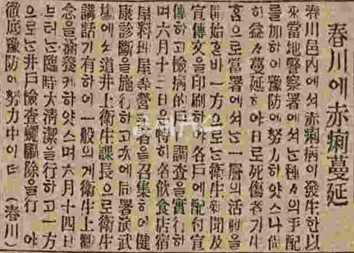 春川에赤痢蔓延
春川邑內에서赤痢病이發生한以
來當地警察署에서는種々의手配
를加하여豫防에努力하얏스나尙
히益々蔓延하야日로死傷者가生
홈으로當署에서는一層의活動을
開始홀바一方으로는衛生新聞及
宣傳文을印刷하야各戶에配付宣
傳하고檢病的戶口調査를實行하
며六月十三日은特히各飮食店宿
屋料理屋等營業者를召集하야健
康診斷을施行하고次에同署演武
場에서道井上衛生課長으로衛生
講話가有하야一般의게衛生上觀
念을涵養케하얏스며六月十四日
부터는臨時大淸潔을行하고一方
으로는井戶檢査蠅驅除를行하야
徹底豫防에努力中이다 (春川)